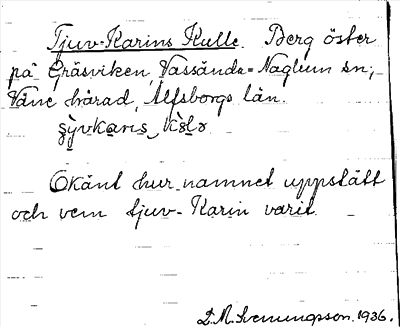 Tjuv-Karins Kulle. Berg öster
på Gräsviken, Vassända-Naglum sn;
Väne härad, Älfsborgs län.
Okänt hur namnet uppstått
och vem tjuv-Karin varit.
D.M. Svenungsson. 1936.